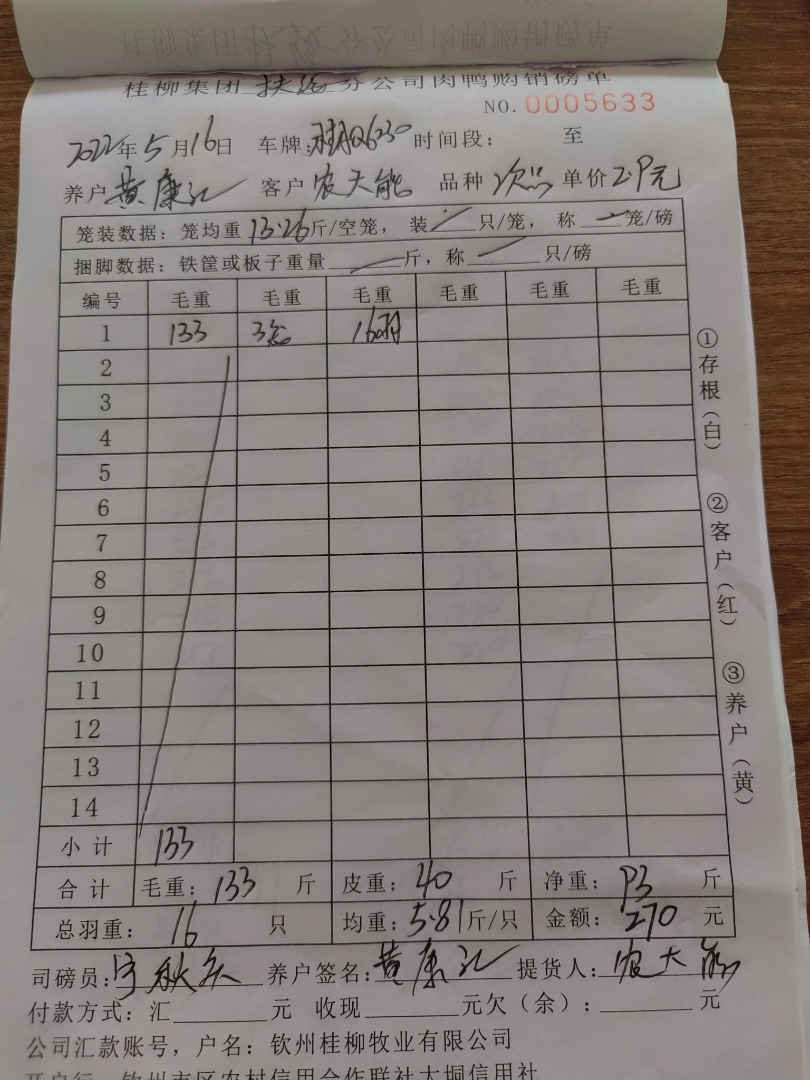 桂柳集团扶绥分公司肉鸭购销磅单
NO. 0005633
2022年5月16日 车牌: 时间段: 至
养户 黄康汇 客户 农大能 品种 次品 单价 2.9元
笼装数据: 笼均重 13.26斤/空笼, 装 / 只/笼, 称 / 笼/磅
捆脚数据: 铁筐或板子重量 / 斤, 称 / 只/磅
编号 毛重 毛重 毛重 毛重 毛重 毛重
1 133 3笼 16羽
2
3
4
5
6
7
8
9
10
11
12
13
14
小计 133
合计 毛重: 133 斤 皮重: 40 斤 净重: 93 斤
总羽重: 16 只 均重: 5.81斤/只 金额: 270 元
司磅员: 养户签名: 黄康汇 提货人: 农大能
付款方式: 汇 元 收现 元欠(余): 元
公司汇款账号, 户名: 钦州桂柳牧业有限公司
开户行: 钦州市区农村信用合作联社大垌信用社
①存根(白)
②客户(红)
③养户(黄)